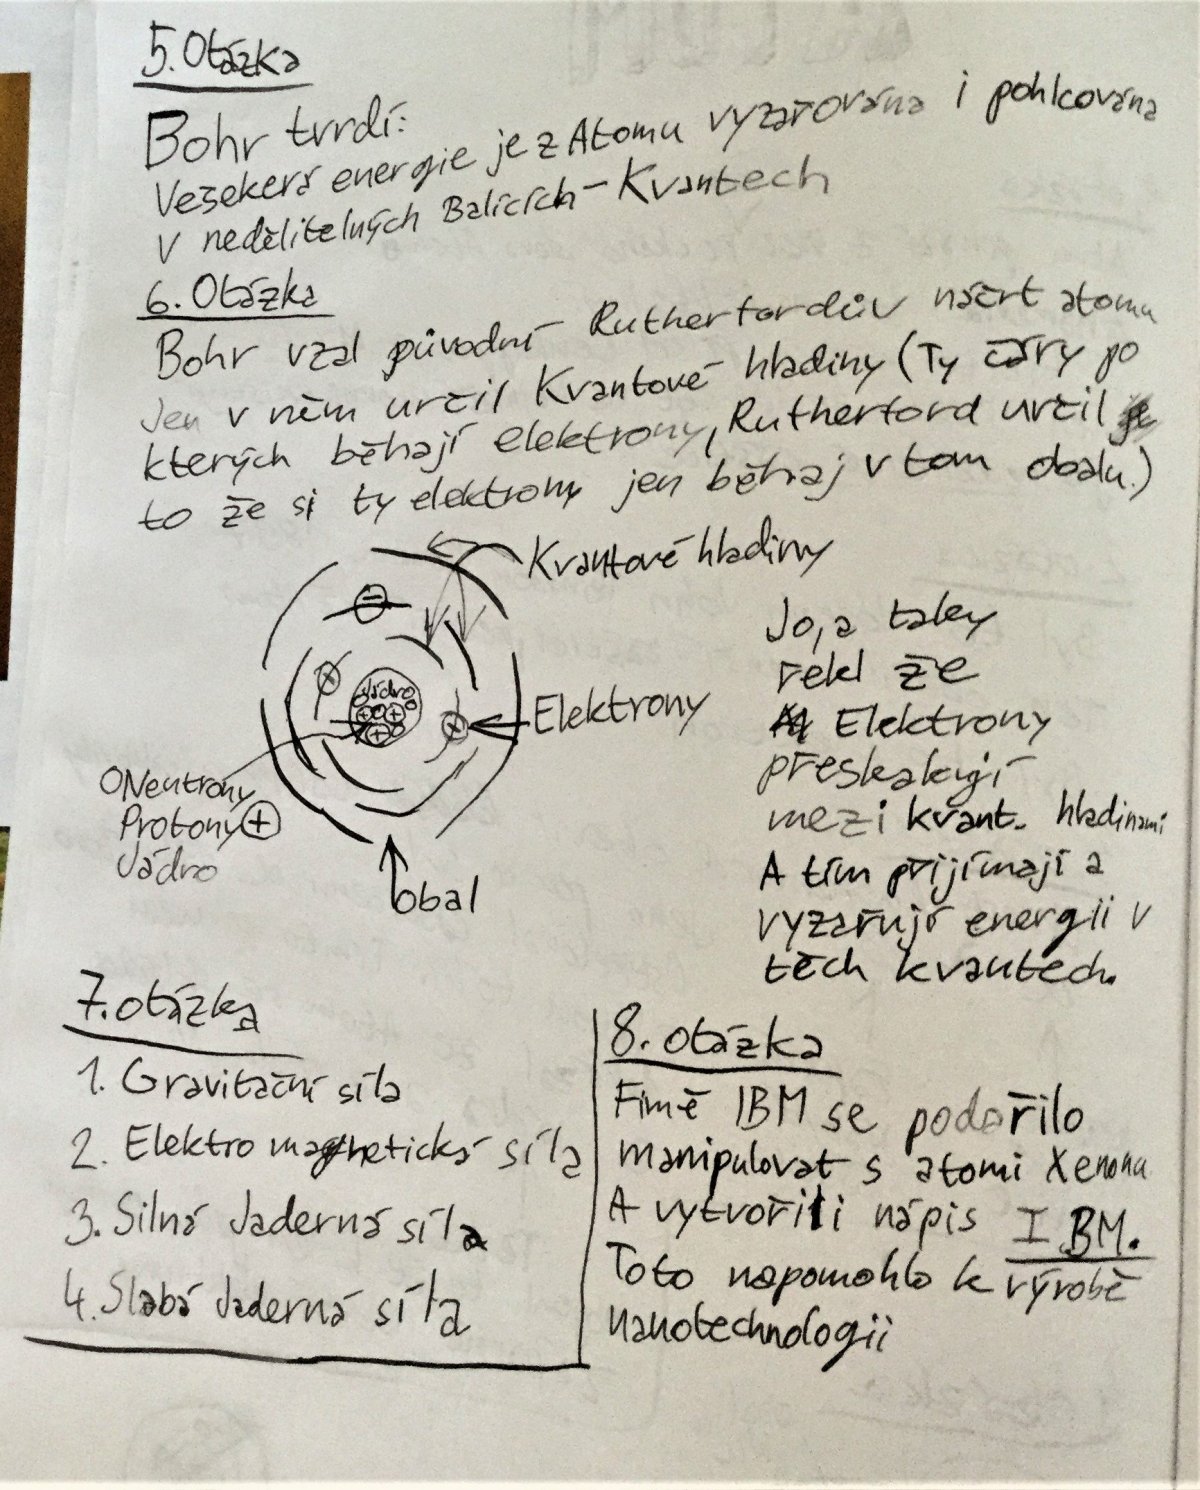 5. Otázka
Bohr tvrdí:
Vešekerá energie je z Atomu vyzařována i pohlcována
v nedělitelných Balících - Kvantech
6. Otázka
Bohr vzal původní Rutherfordův náčrt atomu
Jen v něm určil Kvantové hladiny (Ty čáry po
kterých běhají elektrony, Rutherford určil
to že si ty elektrony jen běhaj v tom obalu.)
Kvantové hladiny
Jádro
Elektrony
Neutrony
Protony +
Jádro
obal
Jo, a taky
řekl že
Elektrony
přeskakují
mezi kvant. hladinami
A tím přijímají a
vyzařují energii v
těch kvantech.
7. otázka
1. Gravitační síla
2. Elektro magnetická síla
3. Silná Jaderná síla
4. Slabá Jaderná síla
8. otázka
Fimě IBM se podařilo
manipulovat s atomi Xenonu
A vytvořili nápis IBM.
Toto napomohlo k výrobě
nanotechnologii